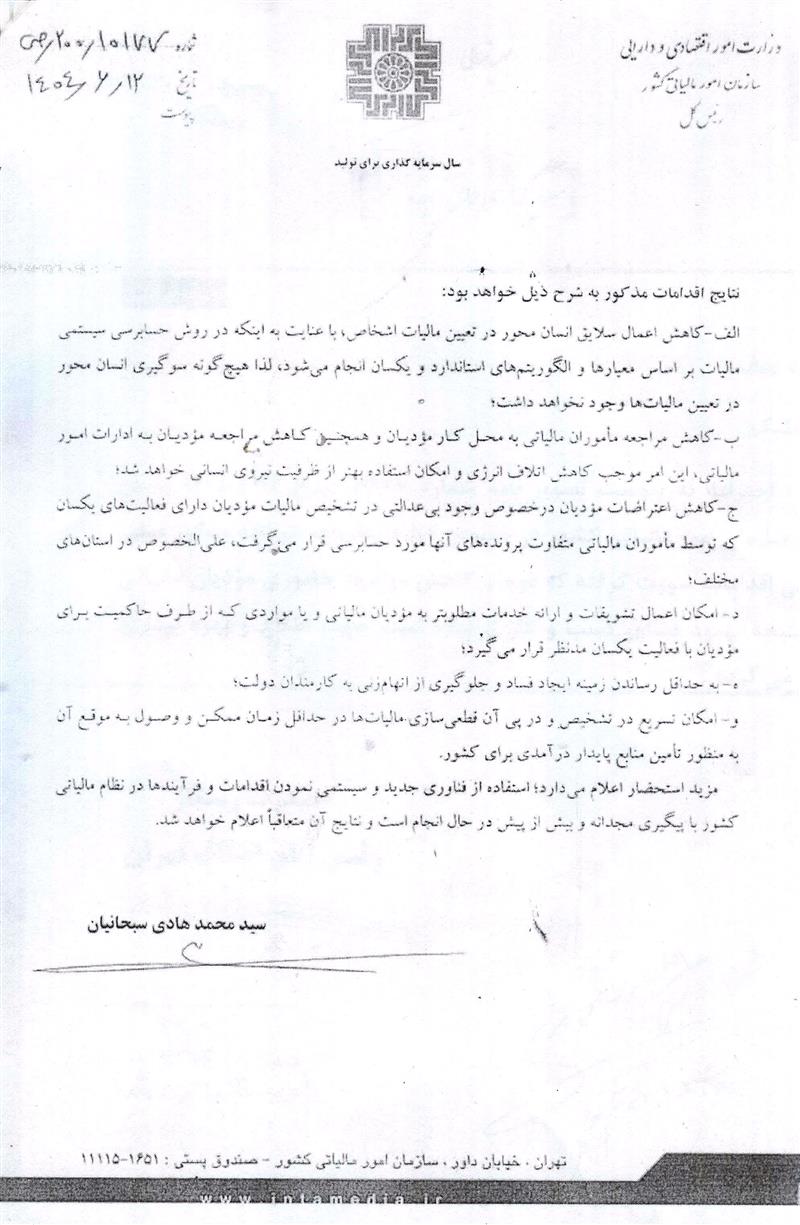 وزارت امور اقتصادی و دارایی
سازمان امور مالیاتی کشور
رئیس کل
شماره ۲۰۰/۱۰۱۷۷/ص
تاریخ ۱۴۰۴/۶/۱۲
پیوست
سال سرمایه گذاری برای تولید
نتایج اقدامات مذکور به شرح ذیل خواهد بود:
الف-کاهش اعمال سلایق انسان محور در تعیین مالیات اشخاص، با عنایت به اینکه در روش حسابرسی سیستمی
مالیات بر اساس معیارها و الگوریتم‌های استاندارد و یکسان انجام می‌شود، لذا هیچ‌گونه سوگیری انسان محور
در تعیین مالیات‌ها وجود نخواهد داشت؛
ب-کاهش مراجعه مأموران مالیاتی به محل کار مؤدیان و همچنین کاهش مراجعه مؤدیان به ادارات امور
مالیاتی، این امر موجب کاهش اتلاف انرژی و امکان استفاده بهتر از ظرفیت نیروی انسانی خواهد شد؛
ج-کاهش اعتراضات مؤدیان درخصوص وجود بی‌عدالتی در تشخیص مالیات مؤدیان دارای فعالیت‌های یکسان
که توسط مأموران مالیاتی متفاوت پرونده‌های آنها مورد حسابرسی قرار می‌گرفت، علی‌الخصوص در استان‌های
مختلف؛
د- امکان اعمال تشویقات و ارائه خدمات مطلوبتر به مؤدیان مالیاتی و یا مواردی که از طرف حاکمیت برای
مؤدیان با فعالیت یکسان مدنظر قرار می‌گیرد؛
ه- به حداقل رساندن زمینه ایجاد فساد و جلوگیری از اتهام‌زنی به کارمندان دولت؛
و- امکان تسریع در تشخیص و در پی آن قطعی‌سازی مالیات‌ها در حداقل زمان ممکن و وصول به موقع آن
به منظور تأمین منابع پایدار درآمدی برای کشور.
مزید استحضار اعلام می‌دارد؛ استفاده از فناوری جدید و سیستمی نمودن اقدامات و فرآیندها در نظام مالیاتی
کشور با پیگیری مجدانه و بیش از پیش در حال انجام است و نتایج آن متعاقباً اعلام خواهد شد.
سید محمد هادی سبحانیان
تهران ، خیابان داور ، سازمان امور مالیاتی کشور - صندوق پستی : ۱۶۵۱-۱۱۱۱۵
www.intamedia.ir